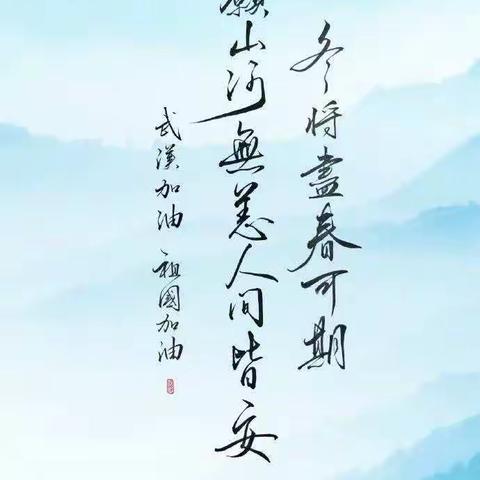 冬将盡春可期
願山河無恙人间皆安
武漢加油 祖國加油